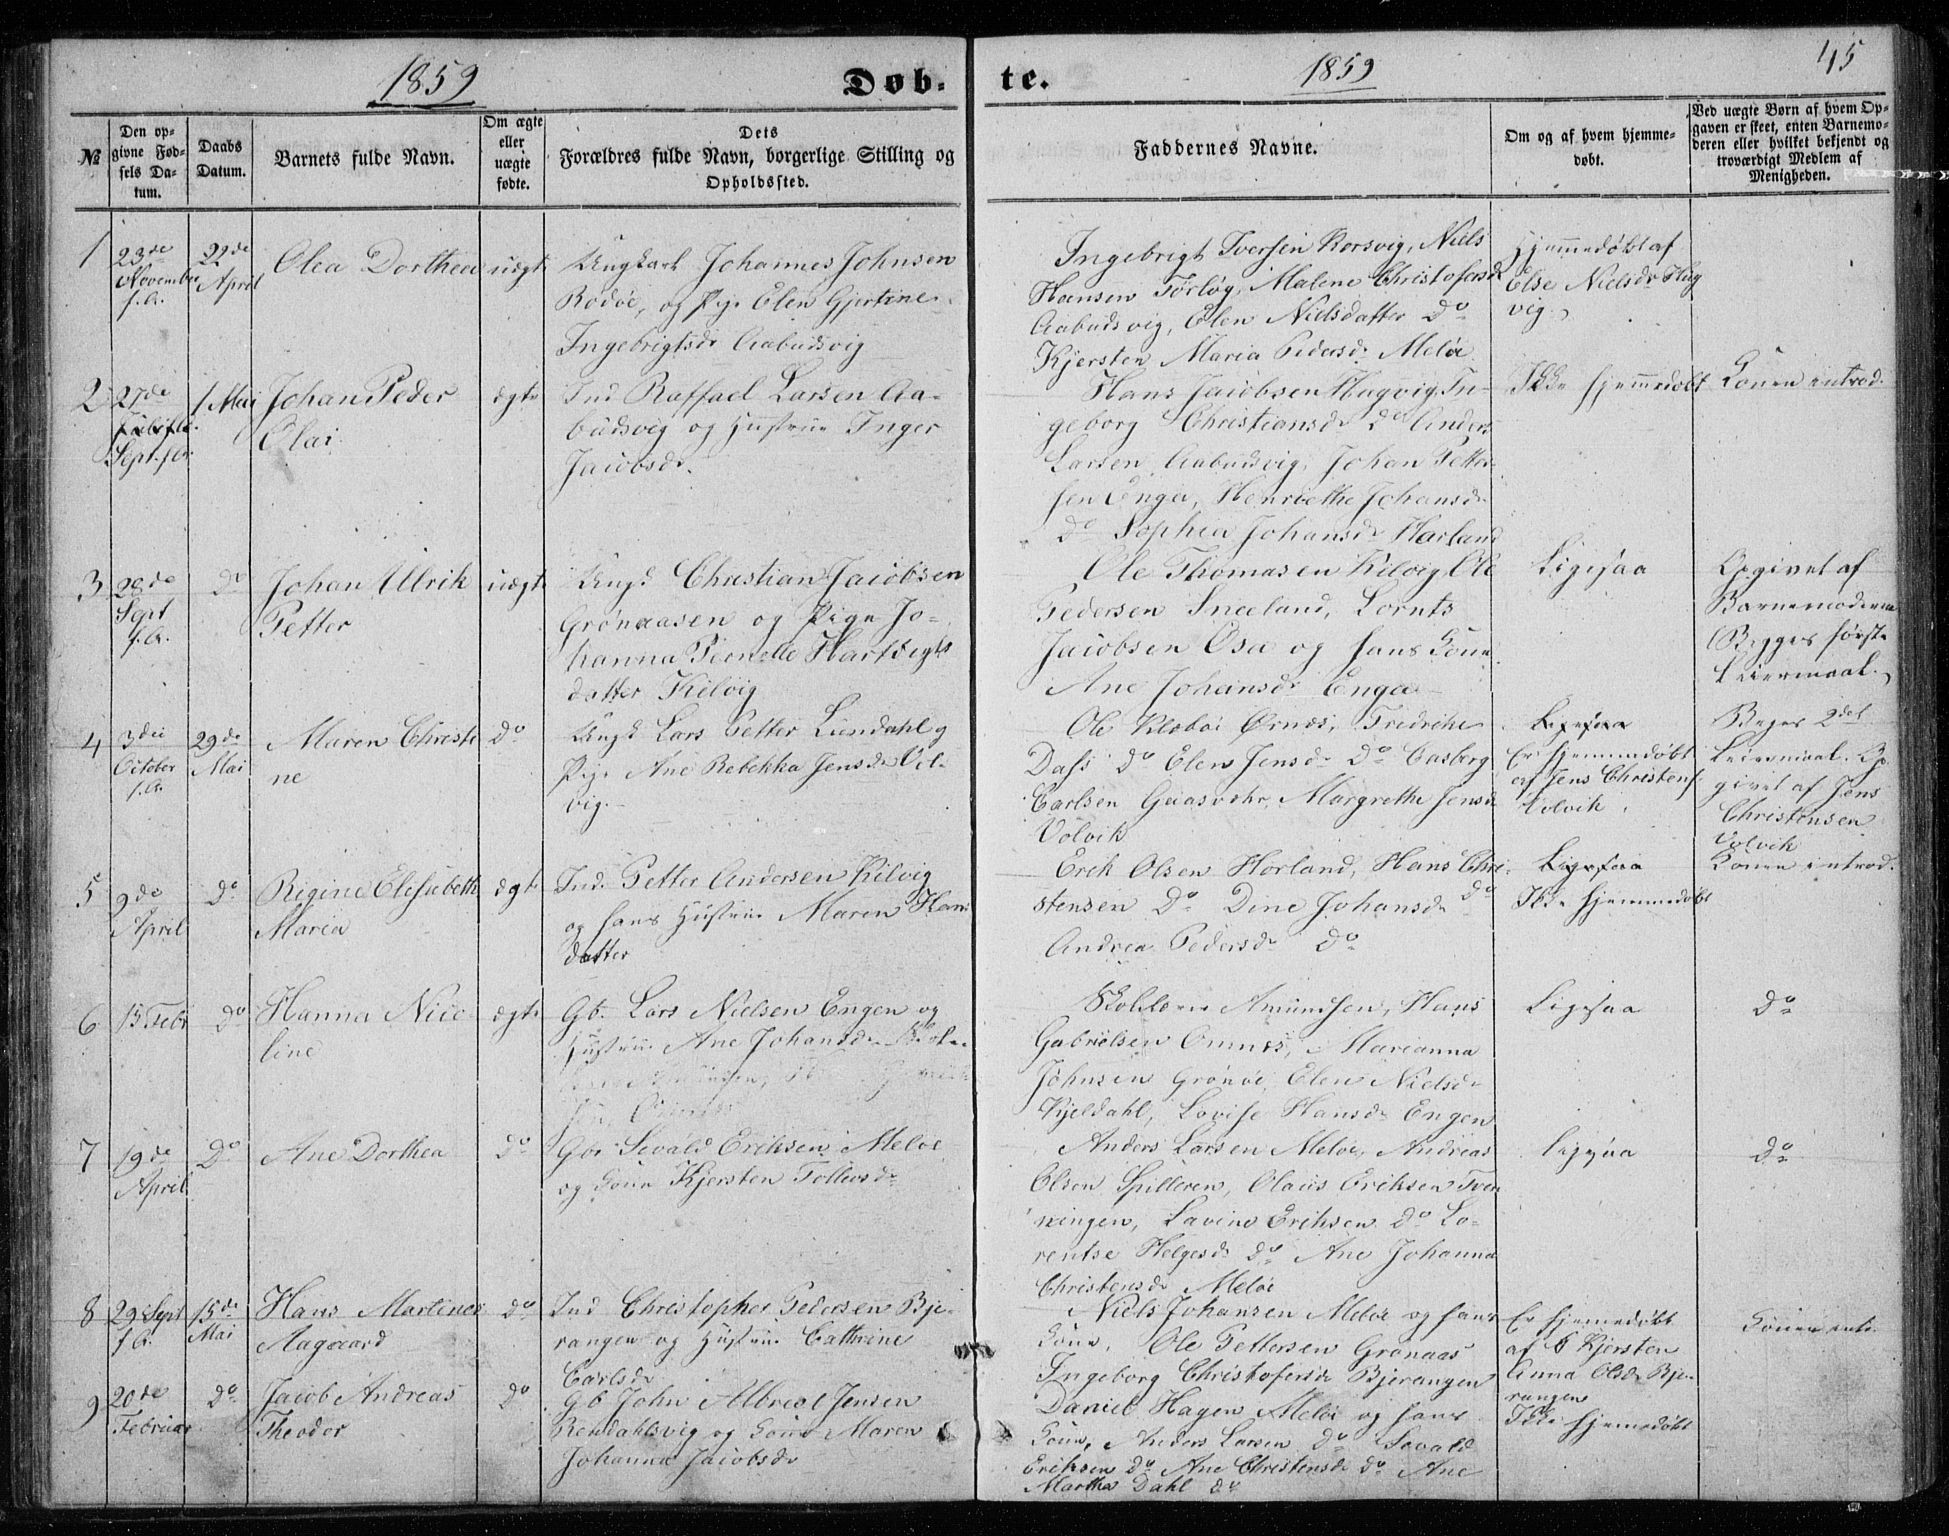 1859
Døb-
te.
1859
45
№
Den op-
givne Fød-
sels Da-
tum.
Daabs
Datum.
Barnets fulde Navn.
Om ægte
eller
uægte
fødte.
Dets
Forældres fulde Navn, borgerlige Stilling og
Opholdssted.
Faddernes Navne.
Om og af hvem hjemme-
døbt.
Ved uægte Børn af hvem Op-
gaven er skeet, enten Barnemo-
deren eller hvilket bekjendt og
troværdigt Medlem af
Menigheden.
1
23de
November
f.A.
22de
April
Olea Dorthea
uægte
Ungkarl Johannes Johnsen
Rødøe, og Pige Elen Gjertine
Ingebrigtsdr Aabudsvig
Ingebrigt Iversen Korsvig, Niels
Hansen Tørløg, Malene Christofersdr
Aabudsvig, Elen Nielsdatter do
Kjersten Maria Pedersdr Meløe
Hjemmedøbt af
Else Nielsdr Hug
vig
2
27de
Sept. f. A.
1 Mai
Johan Peder
Olai
ægte
Ind Raffael Larsen Aa-
budsvig og Hustrue Inger
Jacobsdr.
Hans Jacobsen Hugvig, In-
geborg Christiansdr do Anders
Larsen Aabudsvig, Johan Petter-
sen Enga, Henriethe Johansdr
do Sophia Johansdr Harland
Ikke hjemmedøbt
Konen introd.
3
28de
Sept
f.A.
do
Johan Ulrik
Petter
uægte
Ungk Christian Jacobsen
Grønaasen og Pige Jo-
hanna Pernelle Hartvigts
datter Kilvig
Ole Thomasen Kilvig, Ole
Pedersen Sneeland, Lornts
Jacobsen Osa og hans Kone
Ane Johansdr Enga
Ligesaa
Opgivet af
Barnemoderen
Begges første
Leiermaal.
4
3die
October
f.A.
29de
Mai
Maren Christi
ne
do
Ungk Lars Petter Lundahl og
Pige Ane Rebekka Jensdr Vol-
vig.
Ole Klæboe Ørnæs, Fredrike
Dass do Elen Jensdr do Casberg
Carlsen Gaasvær, Margrethe Jensdr
Volvik
Ligesaa
Er hjemmedøbt
af Jens Christens.
Volvik
Beges 2det
Leiermaal. Op-
givet af Jens
Christensen
Volvik
5
9de
April
do
Regine Elisabeth
Maria
ægte
Ind. Petter Andersen Kilvig
og hans Hustrue Maren Hans
datter
Erik Olsen Horland, Hans Chri-
stensen do Dine Johansdr do
Andrea Pedersdr do
Ligesaa
Ikke hjemmedøbt
Konen introd.
6
13 Febr
do
Hanna Nico
line
ægte
Gb. Lars Nielsen Engen og
Hustrue Ane Johansdr
Amundsen, Hans
Gabrielsen Ornes, Marianna
Johnsen Grønøe, Elen Nielsdr
Kjeldahl, Lovise Hansdr Engen
Ligesaa
do
7
19de
April
do
Ane Dorthea
do
Gbr Sevald Eriksen Meløe
og Kone Kjersten Tollevsdr
Anders Larsen Meløe, Andreas
Olsen Spilderen, Olaus Eriksen Tven
ningen, Lavine Eriksen do Lo-
rentse Helgesdr do Ane Johanna
Christensdr Meløe
Ligesaa
do
8
29 Sept
f.A.
15de
Mai
Hans Martinus
Aagaard
do
Ind Christopher Pedersen Bje-
rangen og Hustrue Cathrine
Carlsdr
Niels Johansen Meløe og hans
Kone, Ole Pettersen Grønaas
Ingeborg Christofersdr Bjerangen
Er hjemedøbt
af Kjersten
Anna Olsdr Bje-
rangen
Konen intr.
9
20de
Februar
do
Jacob Andreas
Theodor
do
Gb John Albriel Jensen
Rendahlsvig og Kone Maren
Johanna Jacobsdr
Daniel Hagen Meløe og hans
Kone, Anders Larsen do Sevald
Eriksen do Ane Christensdr do Ane
Martha Dahl do
Ikke hjemedøbt